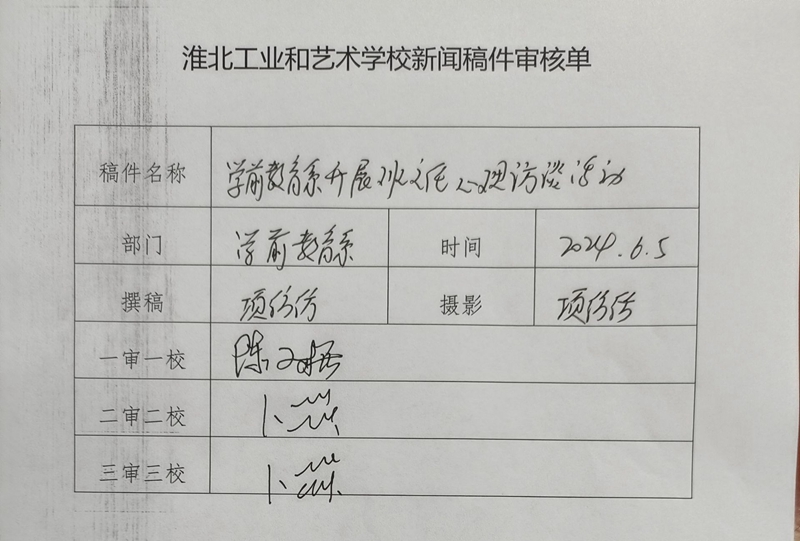 淮北工业和艺术学校新闻稿件审核单
稿件名称 学前教育系开展班主任心理访谈活动
部门 学前教育系 时间 2024.6.5
撰稿 项 摄影 项
一审一校 陈
二审二校
三审三校